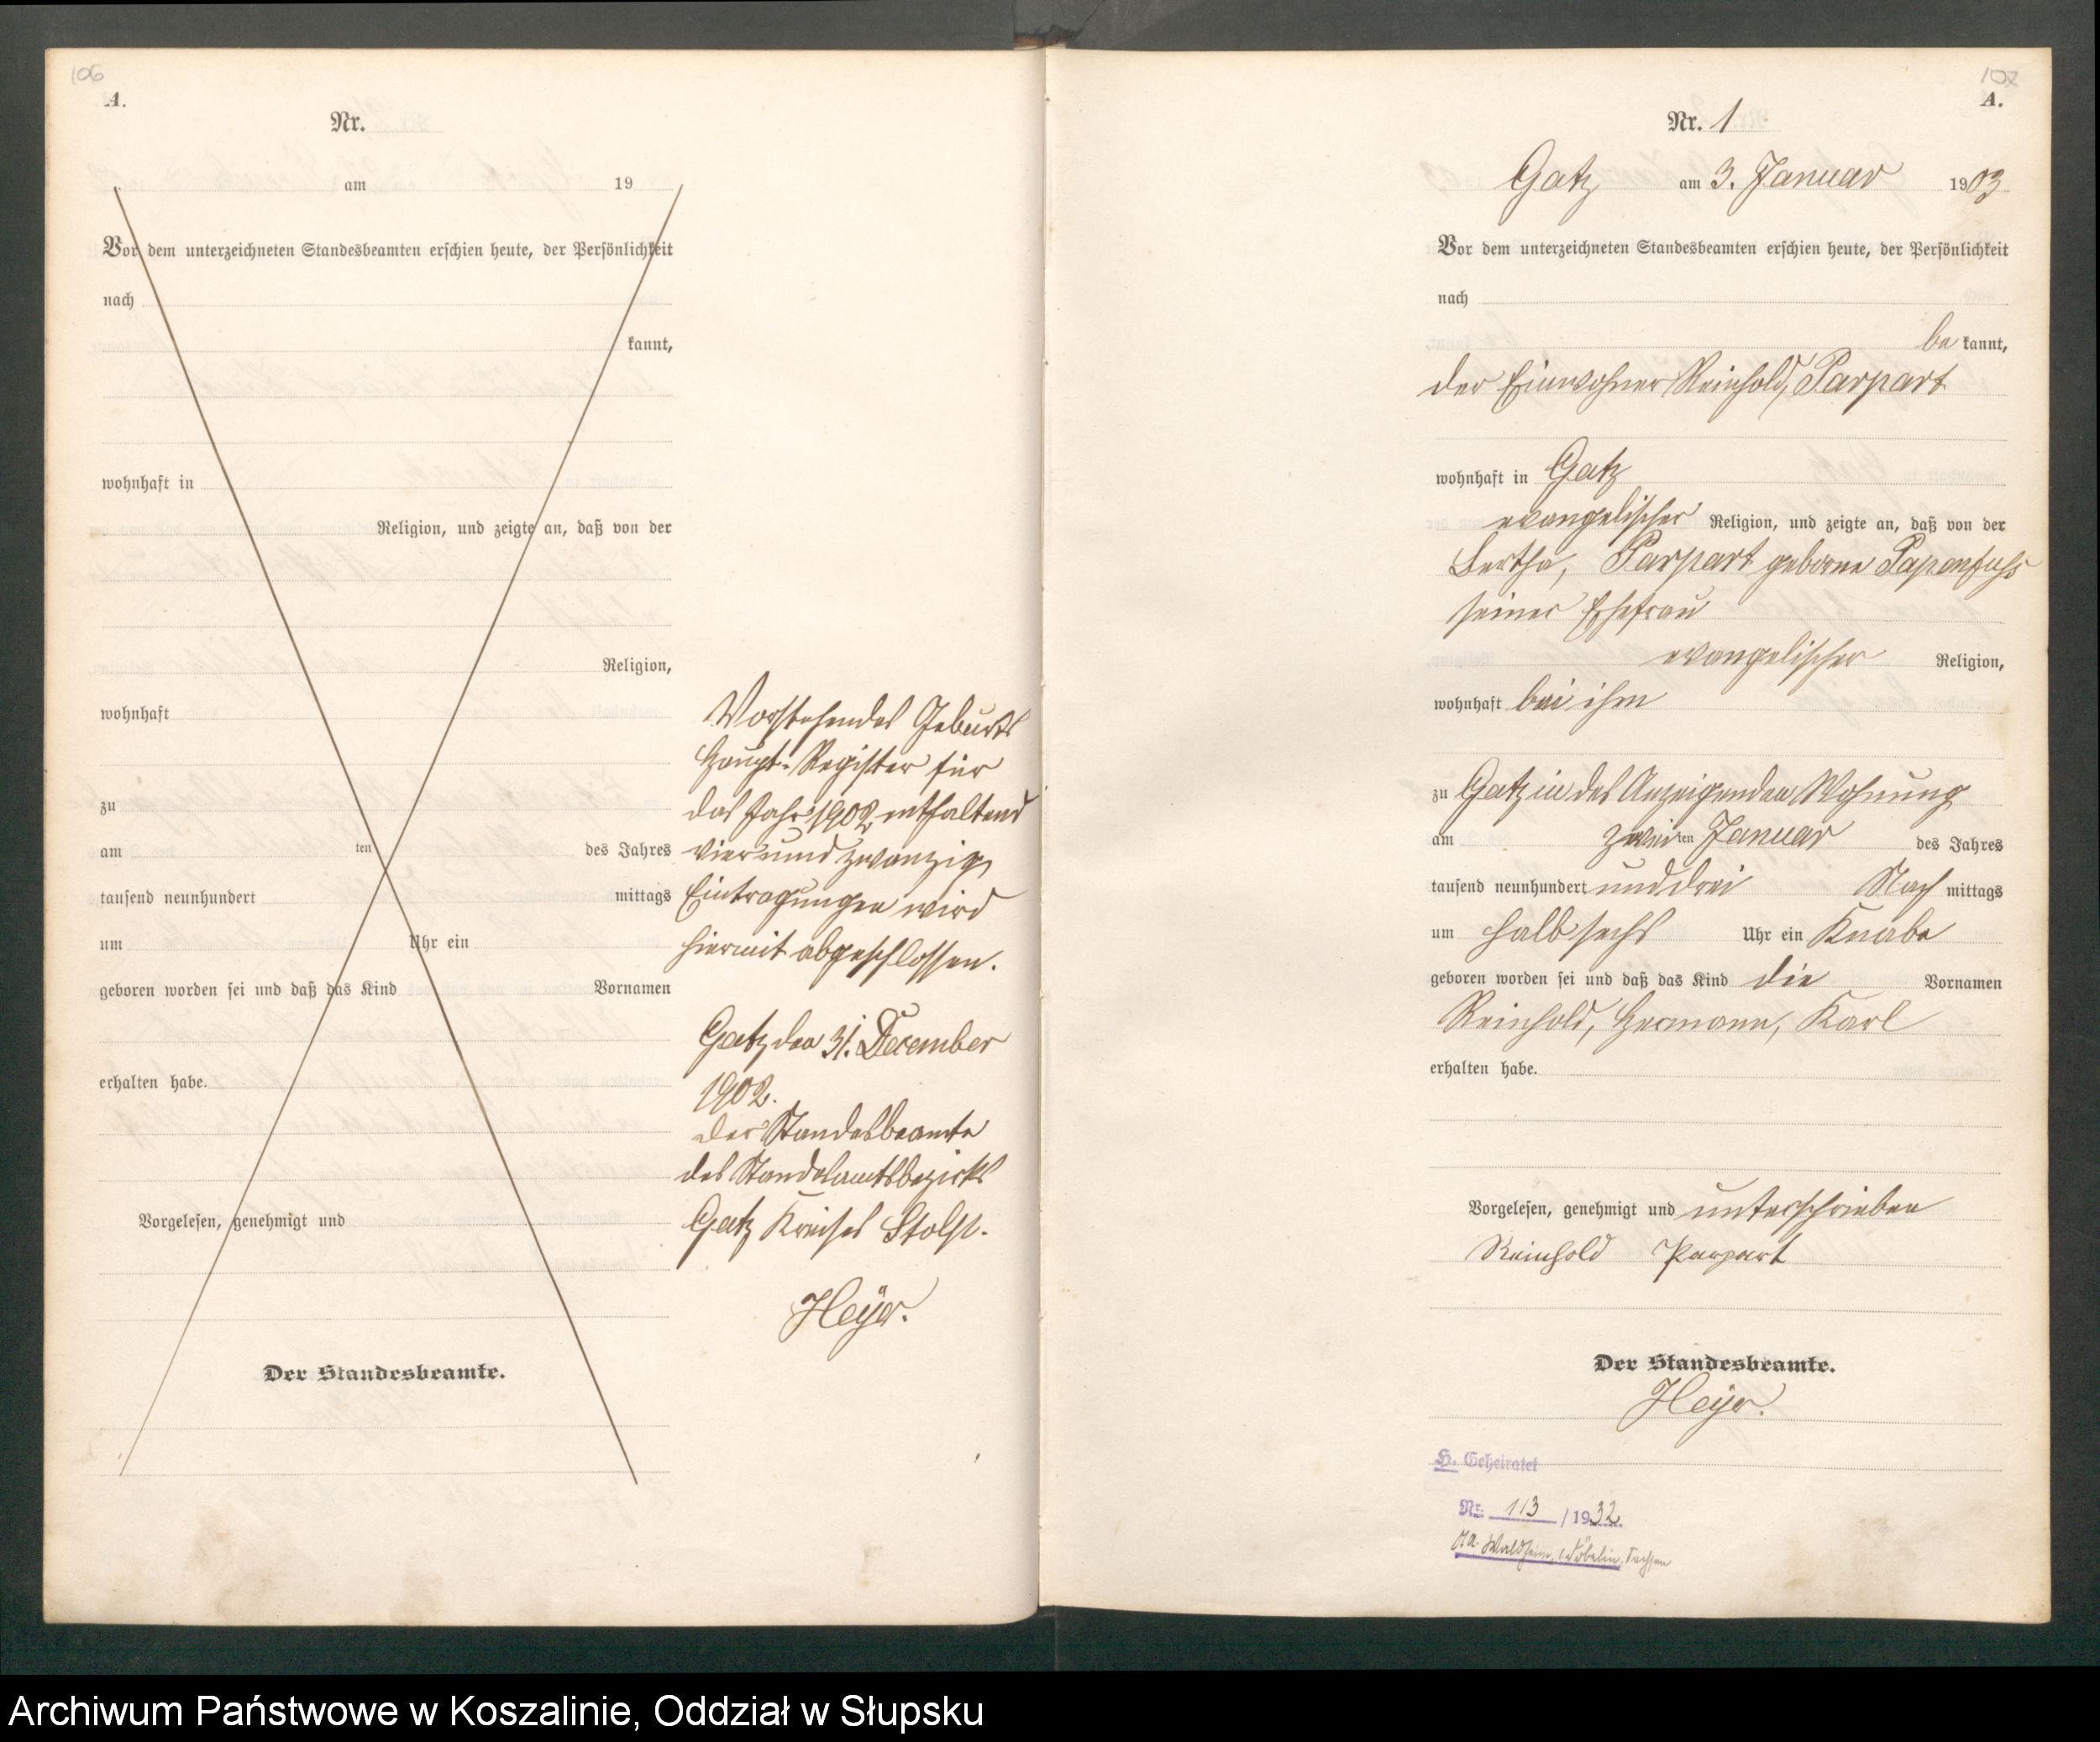 106
A.
Nr.
am 19
Vor dem unterzeichneten Standesbeamten erschien heute, der Persönlichkeit
nach
kannt,
wohnhaft in
Religion, und zeigte an, daß von der
Religion,
wohnhaft
zu
am ten des Jahres
tausend neunhundert mittags
um Uhr ein
geboren worden sei und daß das Kind Vornamen
erhalten habe.
Vorgelesen, genehmigt und
Der Standesbeamte.
Vorstehendes Geburts
Haupt-Register für
das Jahr 1902 enthaltend
vier und zwanzig
Eintragungen wird
hiermit abgeschlossen.
Gatz den 31. December
1902.
Der Standesbeamte
des Standesamtsbezirks
Gatz Kreises Stolp.
Heyer.
107
A.
Nr. 1
Gatz am 3. Januar 1903
Vor dem unterzeichneten Standesbeamten erschien heute, der Persönlichkeit
nach
be kannt,
der Einwohner Reinhold, Parpart
wohnhaft in Gatz
evangelischer Religion, und zeigte an, daß von der
Bertha, Parpart geborne Papenfuhs
seiner Ehefrau
evangelischer Religion,
wohnhaft bei ihm
zu Gatz in des Anzeigenden Wohnung
am zweiten Januar des Jahres
tausend neunhundert und drei Nach mittags
um halb sechs Uhr ein Knabe
geboren worden sei und daß das Kind die Vornamen
Reinhold, Hermann, Karl
erhalten habe.
Vorgelesen, genehmigt und unterschrieben
Reinhold Parpart
Der Standesbeamte.
Heyer.
H. Geheiratet
Nr. 113 / 1932.
Waldheim, Döbeln, Sachsen
Archiwum Państwowe w Koszalinie, Oddział w Słupsku